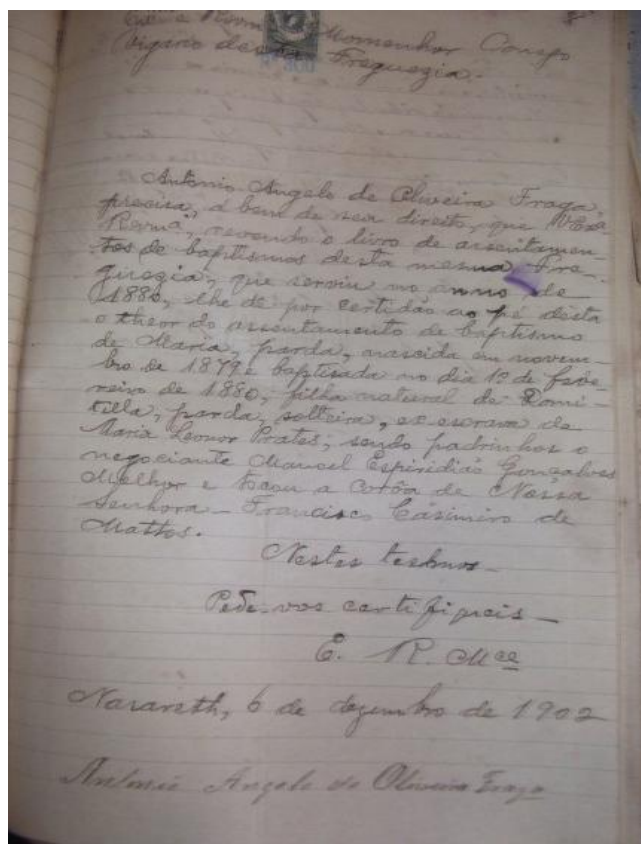 Monsenhor Conego
Vigario desta Freguezia.
300
Antonio Angelo de Oliveira Fraga,
precisa, a bem de seu direito, que V. Exa.
Revma, revendo o livro de assentamen-
tos de baptismos desta mesma Fre-
guezia, que serviu no anno de
1880, lhe dê por certidão ao pé desta
o theor do assentamento de baptismo
de Maria, parda, nascida em novem-
bro de 1879 e baptisada no dia 1º de feve-
reiro de 1880, filha natural de Domi-
tilla, parda, solteira, ex escrava de
Maria Leonor Prates; sendo padrinhos o
negociante Manoel Espiridião Gonçalves
Melhor e tocou a corôa de Nossa
Senhora - Francisco Casimiro de
Mattos.
Nestes termos -
Pede-vos certifiqueis -
E. R. Mce
Nazareth, 6 de dezembro de 1902
Antonio Angelo de Oliveira Fraga